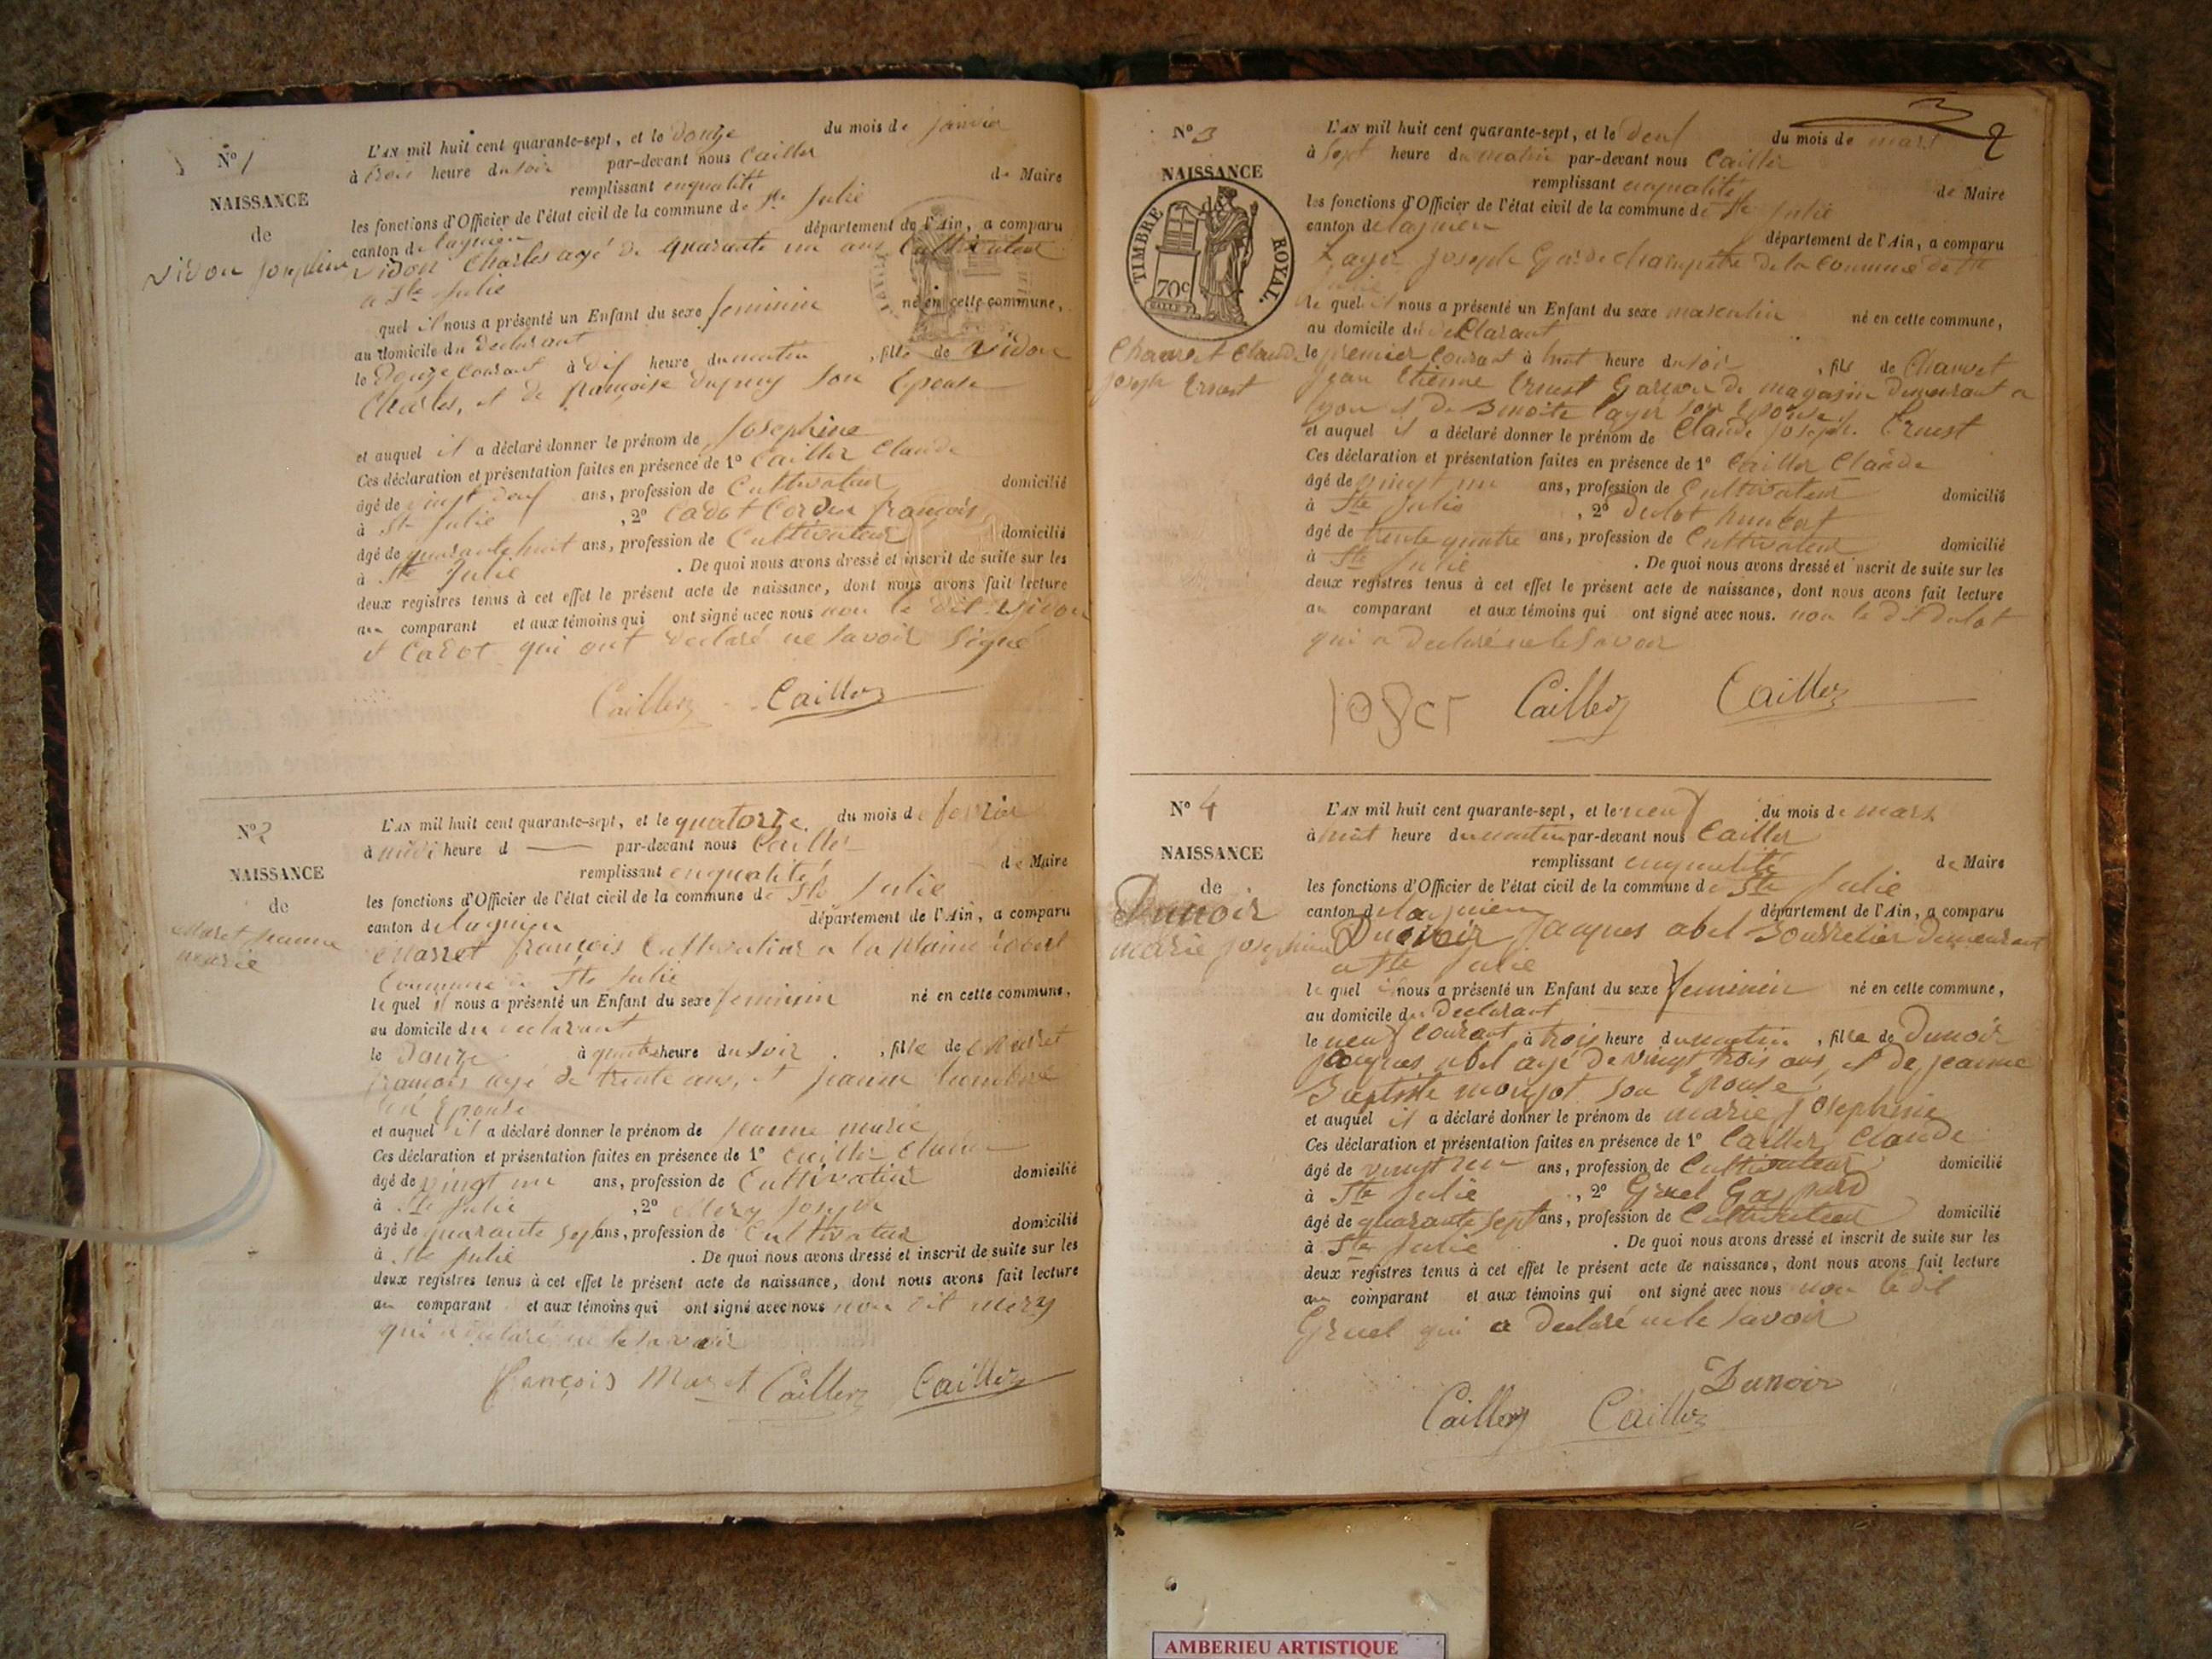 N° 1
NAISSANCE
de
Vidon Josephine
L'AN mil huit cent quarante-sept, et le douze du mois de janvier
à trois heure du soir par-devant nous Cailler
remplissant enqualité de Maire
les fonctions d'Officier de l'état civil de la commune de Ste Julie
canton de lagnieu département de l'Ain, a comparu
Vidon Charles agé de quarante un ans Cultivateur
a Ste Julie
quel il nous a présenté un Enfant du sexe feminin né en cette commune,
au domicile du declarant
le douze courant à dix heure du matin, fille de Vidon
Charles, et de françoise dupuy son Epouse
et auquel il a déclaré donner le prénom de Josephine
Ces déclaration et présentation faites en présence de 1° Cailler Claude
âgé de vingt deux ans, profession de Cultivateur domicilié
à Ste Julie, 2° Cadot Cordier françois
âgé de quarante huit ans, profession de Cultivateur domicilié
à Ste Julie. De quoi nous avons dressé et inscrit de suite sur les
deux registres tenus à cet effet le présent acte de naissance, dont nous avons fait lecture
au comparant et aux témoins qui ont signé avec nous non le dit Vidon
et Cadot qui ont declaré ne savoir signé
Cailler Cailler
N° 2
NAISSANCE
de
Maret Jeanne
marie
L'AN mil huit cent quarante-sept, et le quatorze du mois de fevrier
à midi heure d par-devant nous Cailler
remplissant enqualité de Maire
les fonctions d'Officier de l'état civil de la commune de Ste Julie
canton de lagnieu département de l'Ain, a comparu
Marret françois Cultivateur a la plaine
Commune de Ste Julie
le quel il nous a présenté un Enfant du sexe feminin né en cette commune,
au domicile du declarant
le douze à quatre heure du soir, fille de Marret
françois agé de trente ans, et jeanne
son Epouse
et auquel il a déclaré donner le prénom de Jeanne marie
Ces déclaration et présentation faites en présence de 1° Cailler Claude
âgé de vingt un ans, profession de Cultivateur domicilié
à Ste Julie, 2° Mery Joseph
âgé de quarante sept ans, profession de Cultivateur domicilié
à Ste Julie. De quoi nous avons dressé et inscrit de suite sur les
deux registres tenus à cet effet le présent acte de naissance, dont nous avons fait lecture
au comparant et aux témoins qui ont signé avec nous non dit mery
qui a declaré ne le savoir
françois Maret Cailler Cailler
3
2
N° 3
NAISSANCE
TIMBRE ROYAL.
70c
Chauvet Claude
joseph Ernest
L'AN mil huit cent quarante-sept, et le deux du mois de mars
à sept heure du matin par-devant nous Cailler
remplissant enqualité de Maire
les fonctions d'Officier de l'état civil de la commune de Ste Julie
canton de lagnieu département de l'Ain, a comparu
Layer Joseph Garde champetre de la Commune de Ste
Julie
le quel il nous a présenté un Enfant du sexe masculin né en cette commune,
au domicile du declarant
le premier courant à huit heure du soir, fils de Chauvet
Jean Etienne Ernest Garçon de magasin demeurant a
lyon et de Benoite layer son Epouse
et auquel il a déclaré donner le prénom de Claude joseph Ernest
Ces déclaration et présentation faites en présence de 1° Cailler Claude
âgé de vingt un ans, profession de Cultivateur domicilié
à Ste Julie, 2° dulot humbert
âgé de trente quatre ans, profession de Cultivateur domicilié
à Ste Julie. De quoi nous avons dressé et inscrit de suite sur les
deux registres tenus à cet effet le présent acte de naissance, dont nous avons fait lecture
au comparant et aux témoins qui ont signé avec nous. non le dit dulot
qui a declaré ne le savoir
Cailler Cailler
N° 4
NAISSANCE
de
Dunoir
marie josephine
L'AN mil huit cent quarante-sept, et le neuf du mois de mars
à huit heure du matin par-devant nous Cailler
remplissant enqualité de Maire
les fonctions d'Officier de l'état civil de la commune de Ste Julie
canton de lagnieu département de l'Ain, a comparu
Dunoir Jacques abel Bourrelier demeurant
a Ste Julie
le quel il nous a présenté un Enfant du sexe feminin né en cette commune,
au domicile du declarant
le neuf courant à trois heure du matin, fille de Dunoir
jacques abel agé de vingt trois ans, et de jeanne
Baptiste monjot son Epouse
et auquel il a déclaré donner le prénom de marie josephine
Ces déclaration et présentation faites en présence de 1° Cailler Claude
âgé de vingt un ans, profession de Cultivateur domicilié
à Ste Julie, 2° Gruel Gaspard
âgé de quarante sept ans, profession de Cultivateur domicilié
à Ste Julie. De quoi nous avons dressé et inscrit de suite sur les
deux registres tenus à cet effet le présent acte de naissance, dont nous avons fait lecture
au comparant et aux témoins qui ont signé avec nous non le dit
Gruel qui a declaré ne le savoir
Dunoir
Cailler Cailler
AMBERIEU ARTISTIQUE